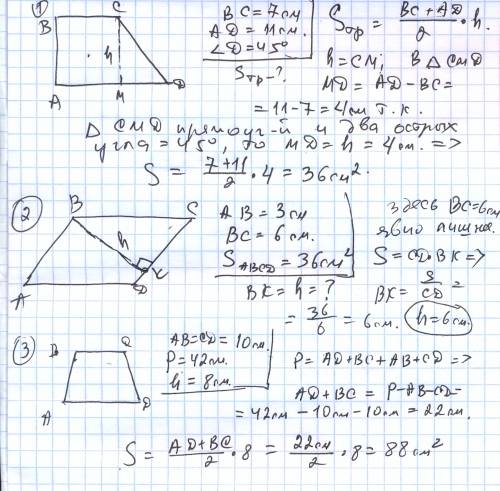 ① B C BC = 7 см
AD = 11 см
∠D = 45°
Sтр - ?
h
A M D
Sтр = BC + AD / 2 · h.
h = CM; В △ CMD
MD = AD - BC =
= 11 - 7 = 4 см т.к.
△ CMD прямоуг-й и два острых
угла = 45°, то MD = h = 4 см. =>
S = 7+11 / 2 · 4 = 36 см².
② B C
h
K
A D
AB = 3 см
BC = 6 см.
S ABCD = 36 см²
BK = h = ?
здесь BC = 6 см
явно лишнее.
S = CD · BK =>
BK = S / CD =
= 36 / 6 = 6 см. h = 6 см.
③ B C
A D
AB = CD = 10 см.
P = 42 см.
h = 8 см.
P = AD + BC + AB + CD =>
AD + BC = P - AB - CD =
= 42 см - 10 см - 10 см = 22 см.
S = AD + BC / 2 · 8 = 22 см / 2 · 8 = 88 см²